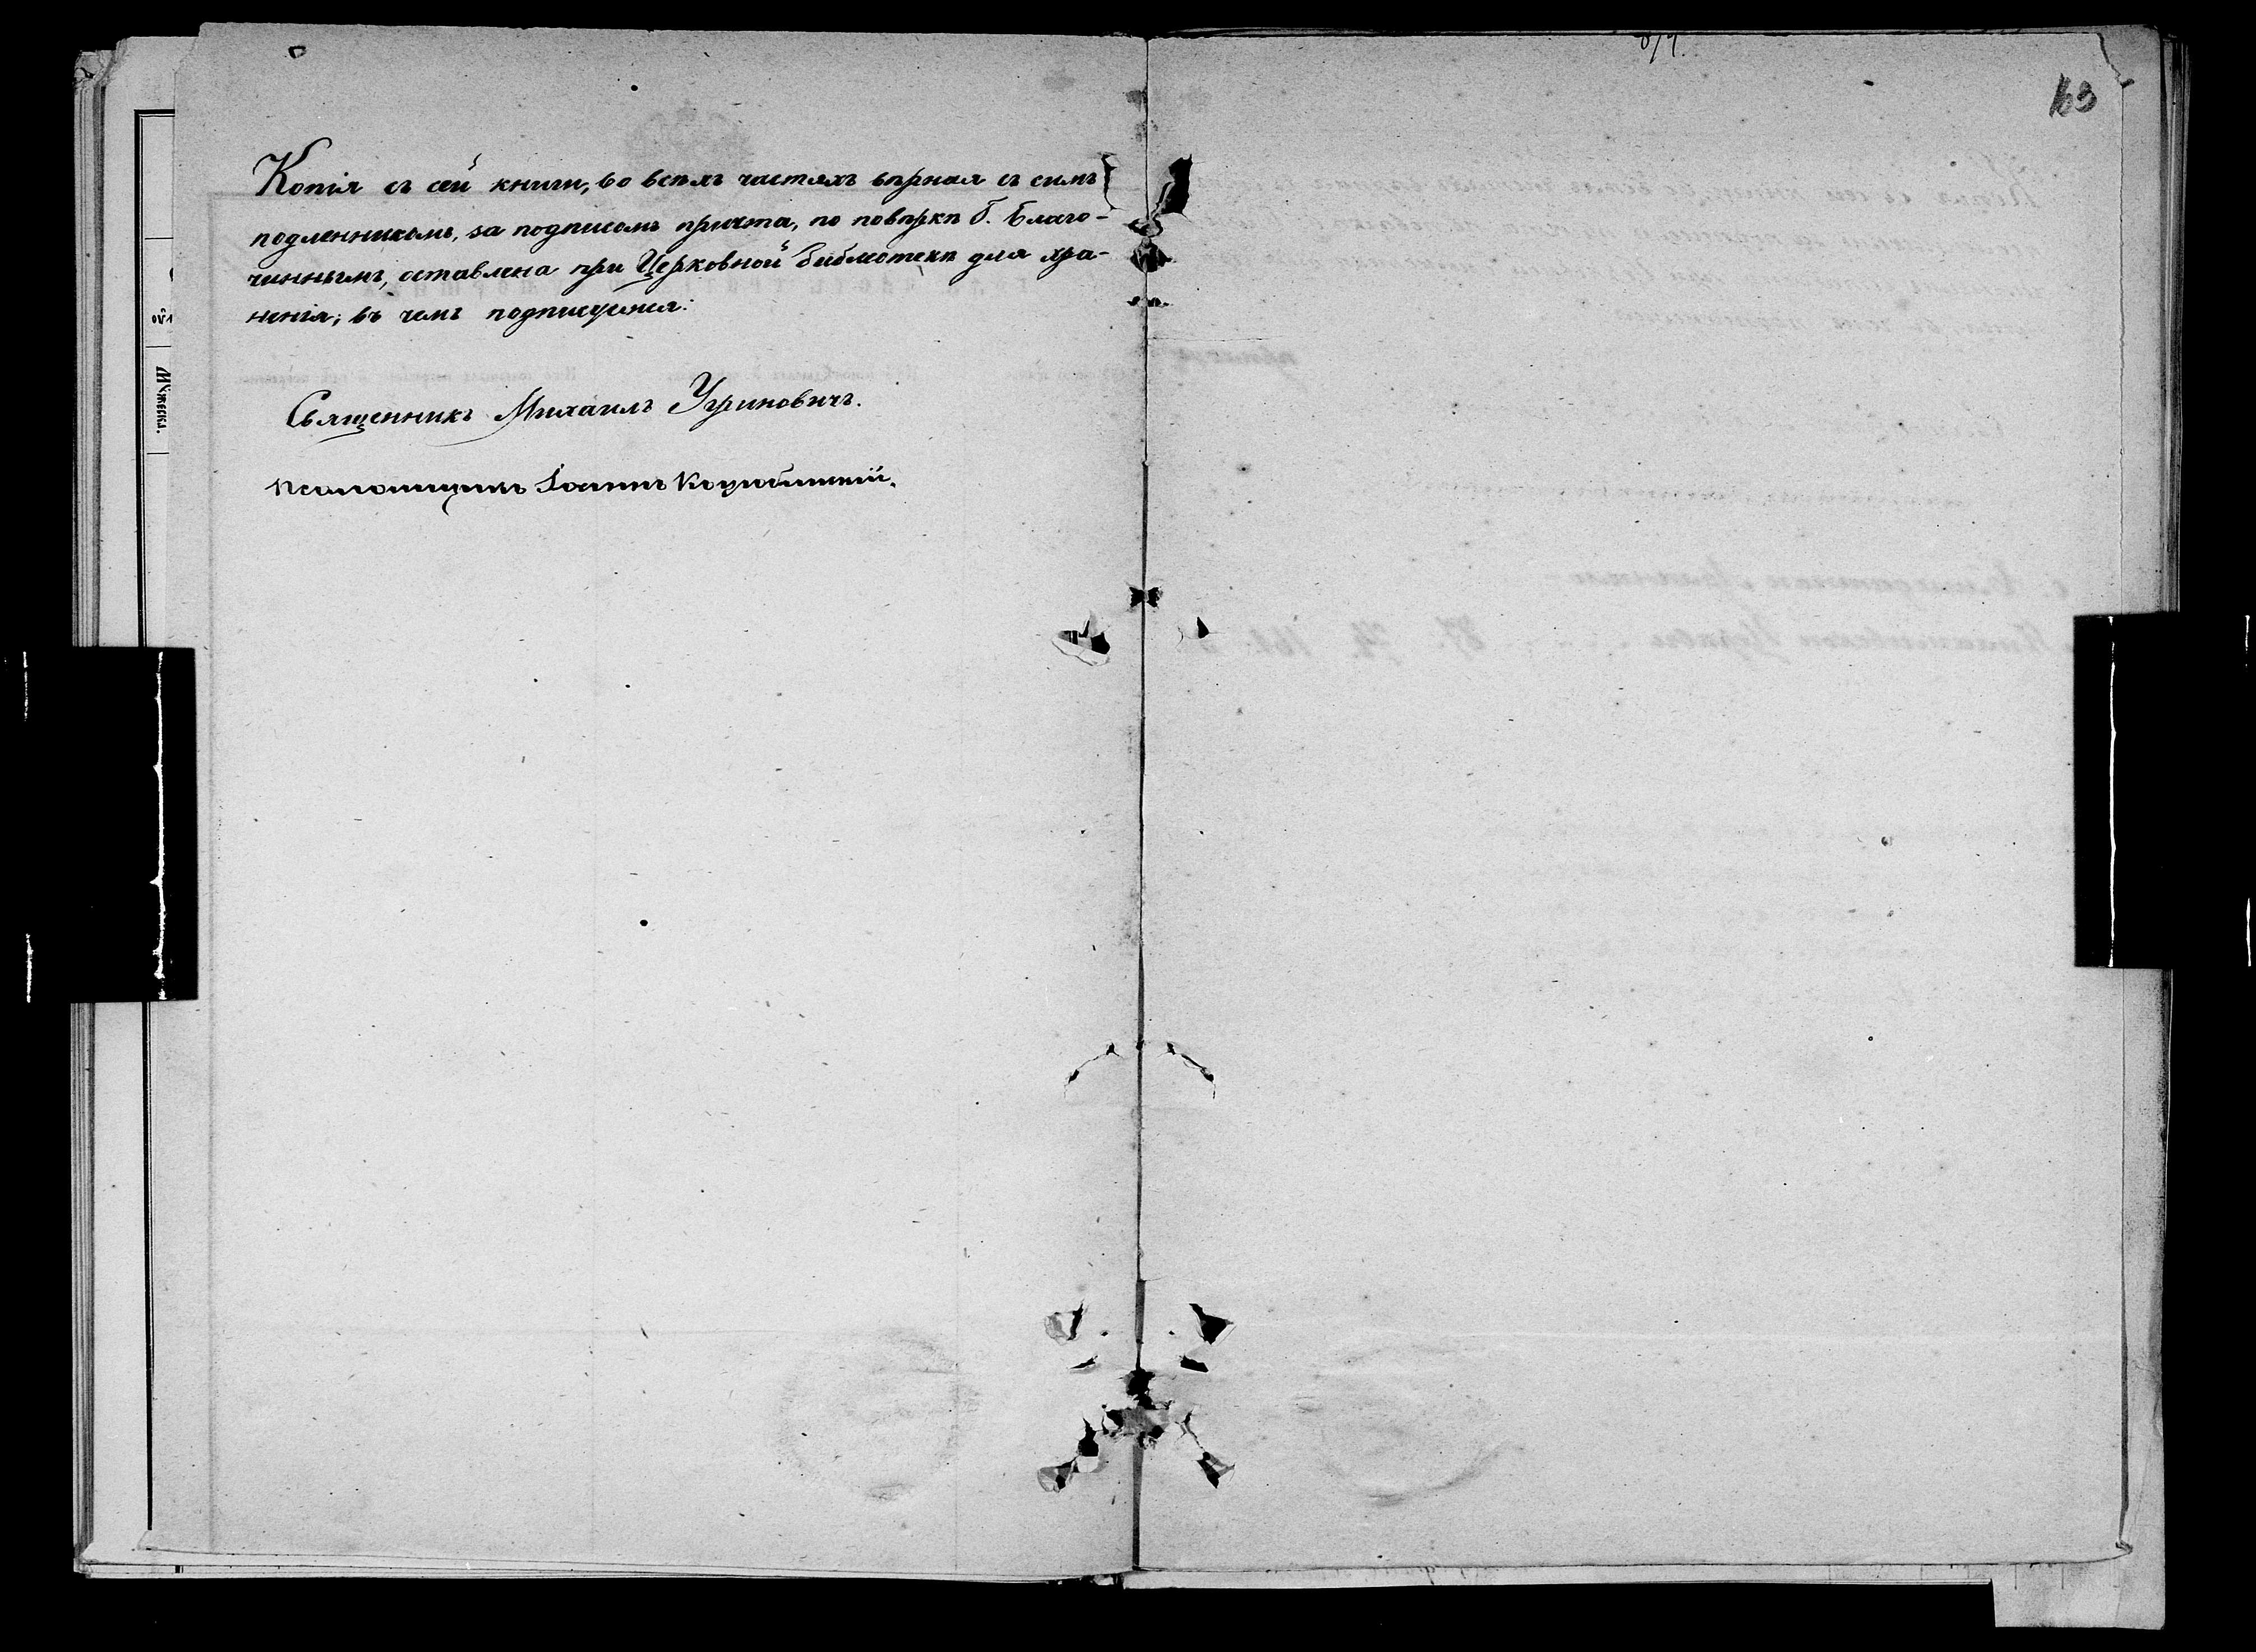 163
Копія съ сей книги, во всѣхъ частяхъ вѣрная съ симъ
подленникомъ, за подписомъ причта, по повѣркѣ б. Благо-
чиннымъ, оставлена при Церковной библіотекѣ для хра-
ненія; въ чемъ подписуемся:
Священникъ Михаилъ Угриновичъ.
Псаломщикъ Іоаннъ